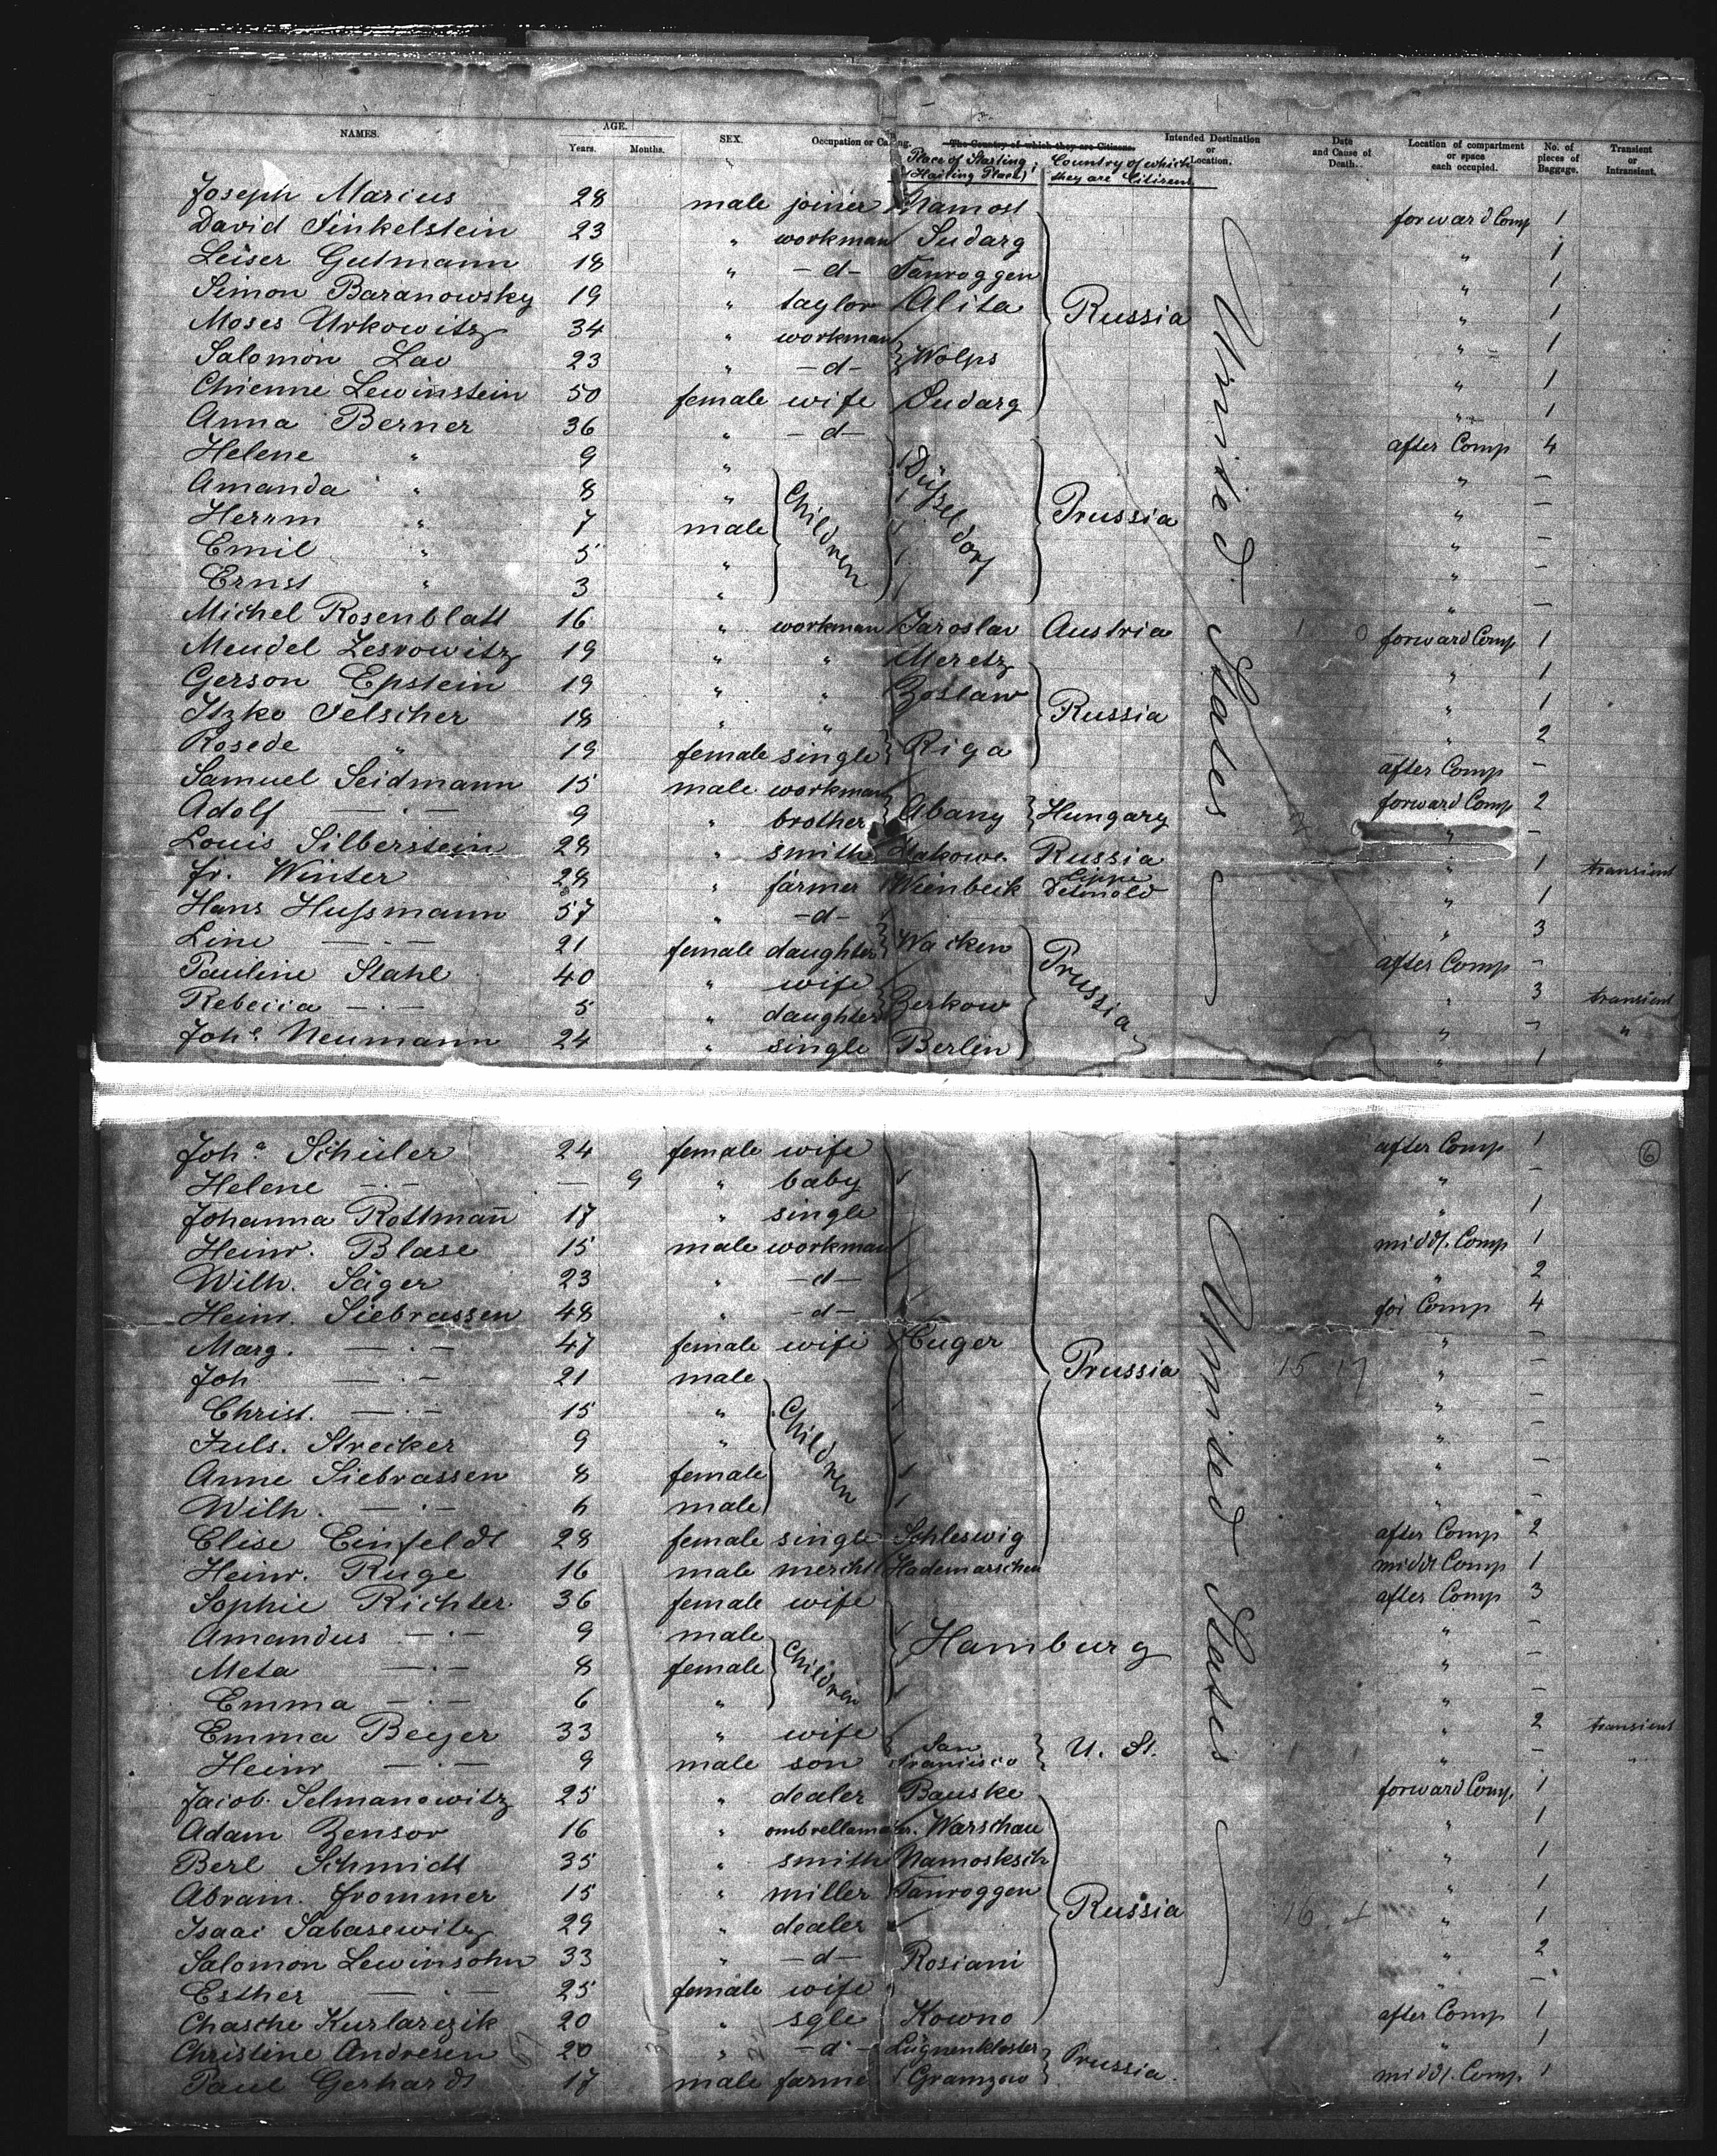 NAMES. AGE. Years. Months. SEX. Occupation or Calling. The Country of which they are Citizens. Place of Starting, (Hailing Place) Country of which they are Citizens Intended Destination or Location. Date and Cause of Death. Location of compartment or space each occupied. No. of pieces of Baggage. Transient or Intransient.
Joseph Marcus 28 male joiner Namost forward Comp 1
David Finkelstein 23 " workman Sudarg " 1
Leiser Gutmann 18 " -d- Tauroggen " 1
Simon Baranowsky 19 " taylor Alita Russia " 1
Moses Urkowitz 34 " workman " 1
Salomon Lav 23 " -d- Wolps " 1
Chienne Lewinstein 50 female wife Sudarg " 1
Anna Berner 36 " -d- after Comp 4
Helene " 9 " Düsseldorf " —
Amanda " 8 " Children " —
Herrm " 7 male Prussia " —
Emil " 5 " " —
Ernst " 3 " " —
Michel Rosenblatt 16 " workman Jaroslav Austria forward Comp 1
Mendel Lesrowitz 19 " " Meretz " 1
Gerson Epstein 19 " " Zoslaw " 1
Itzko Felscher 18 " " Russia " 2
Rosede " 19 female single Riga after Comp —
Samuel Seidmann 15 male workman forward Comp 2
Adolf —"— 9 " brother Abany Hungary " —
Louis Silberstein 28 " smith Makowe Russia " 1 transient
Fr. Winter 28 " farmer Wienbeck Lippe Detmold " 1
Hans Hussmann 57 " -d- " 3
Line —"— 21 female daughter Wacken after Comp —
Pauline Stahl 40 " wife Prussia " 3 transient
Rebecca —"— 5 " daughter Zerkow " — "
Joha Neumann 24 " single Berlin " 1
United States
Joha Schüler 24 female wife after Comp 1 6
Helene —"— — 9 " baby " —
Johanna Rottmann 17 " single " 1
Heinr. Blase 15 male workman middl. Comp 1
Wilh. Säger 23 " -d- " 2
Heinr. Siebrassen 48 " -d- for Comp 4
Marg. —"— 47 female wife Cuger " —
Joh —"— 21 male Prussia 15 17 " —
Christ. —"— 15 " Children " —
Juls. Strecker 9 " " —
Anne Siebrassen 8 female " —
Wilh. —"— 6 male " —
Elise Einfeldt 28 female single Schleswig after Comp 2
Heinr. Ruge 16 male mercht Hademarschen middl Comp 1
Sophie Richter 36 female wife after Comp 3
Amandus —"— 9 male Hamburg " —
Meta —"— 8 female Children " —
Emma —"— 6 " " —
Emma Beyer 33 " wife " 2 transient
Heinr —"— 9 male son San Francisco U. St. " — "
Jacob Selmanowitz 25 " dealer Bauske forward Comp. 1
Adam Zensor 16 " ombrellamaker. Warschau " 1
Berl Schmidt 35 " smith Namosksch " 1
Abram. Frommer 15 " miller Tauroggen " 1
Isaac Sabasewitz 29 " dealer Russia " 1
Salomon Lewinsohn 33 " -d- Rosiani " 2
Esther —"— 25 female wife " —
Chasche Kurlarezik 20 " sgle Kowno after Comp 1
Christine Andresen 20 " -d- Lügumkloster " 1
Paul Gerhardt 17 male farmer Gramzow Prussia. middl. Comp. 1
United States